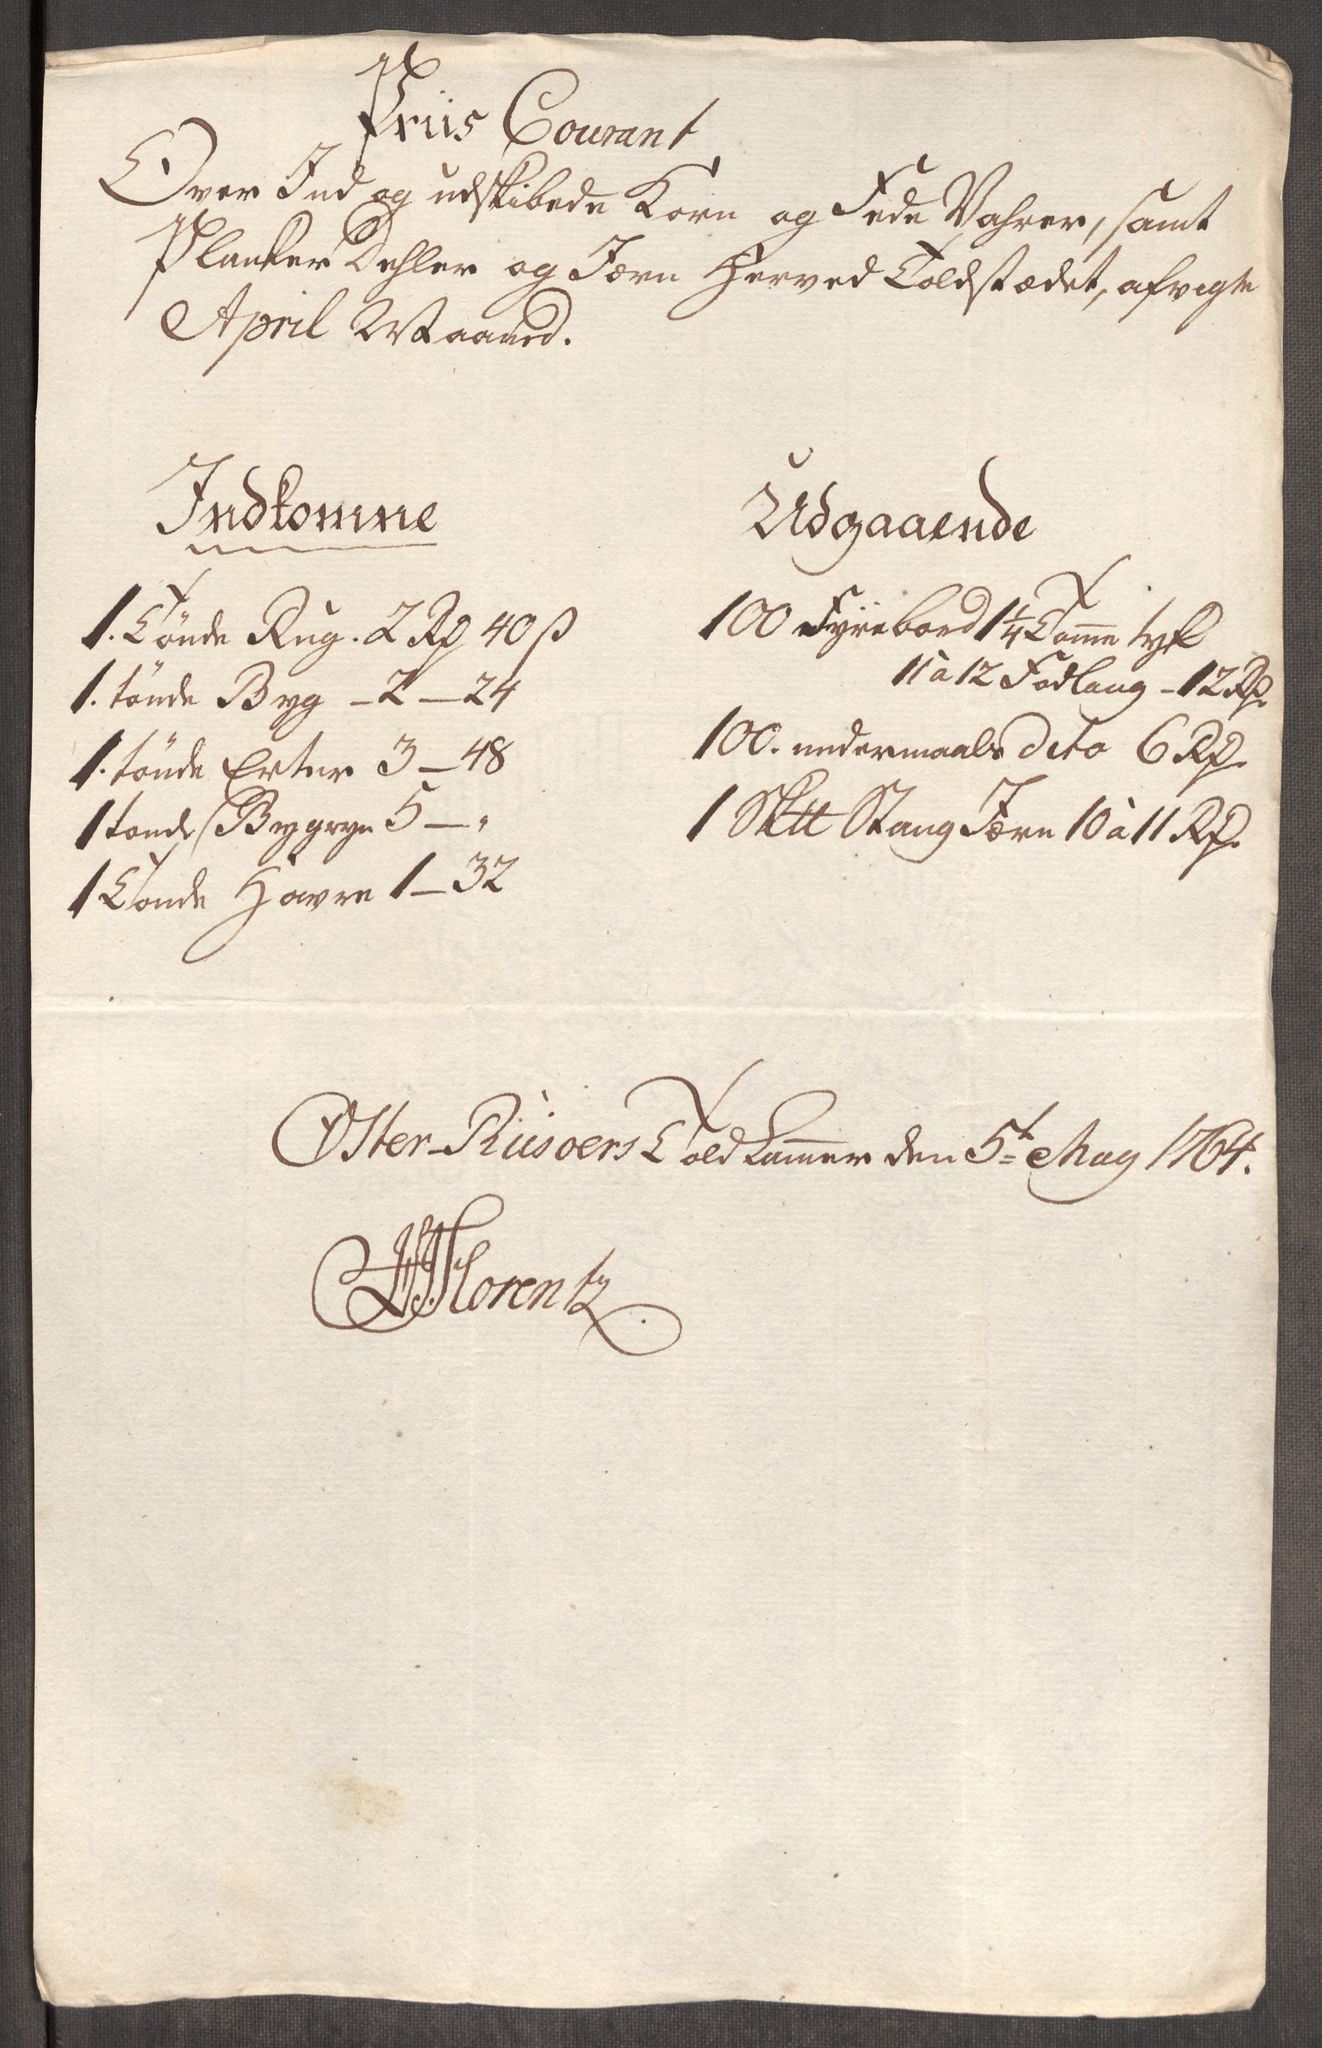 Priis Courant
Over Ind og udskibede Korn og Fede Vahrer, samt
Planker Dehler og Jern Herved Toldstædet, afvigte
April Maaned.
Indkomne
1. Tönde Rug. 2 Rd 40 ß
1. tönde Byg - 2 - 24
1. tönde Erter 3 - 48
1 tonde Byggryn 5 - "
1 Tonde Havre 1 - 32
Udgaaende
100 Fyrebord 1 1/4 Tomme tyk
11 a 12 Fod lang - 12 Rd.
100. undermaals dito 6 Rd.
1 Sk℔ Stang Jern 10 à 11 Rd.
Öster-Riisoers Told Kammer den 5t May 1764.
Florentz.